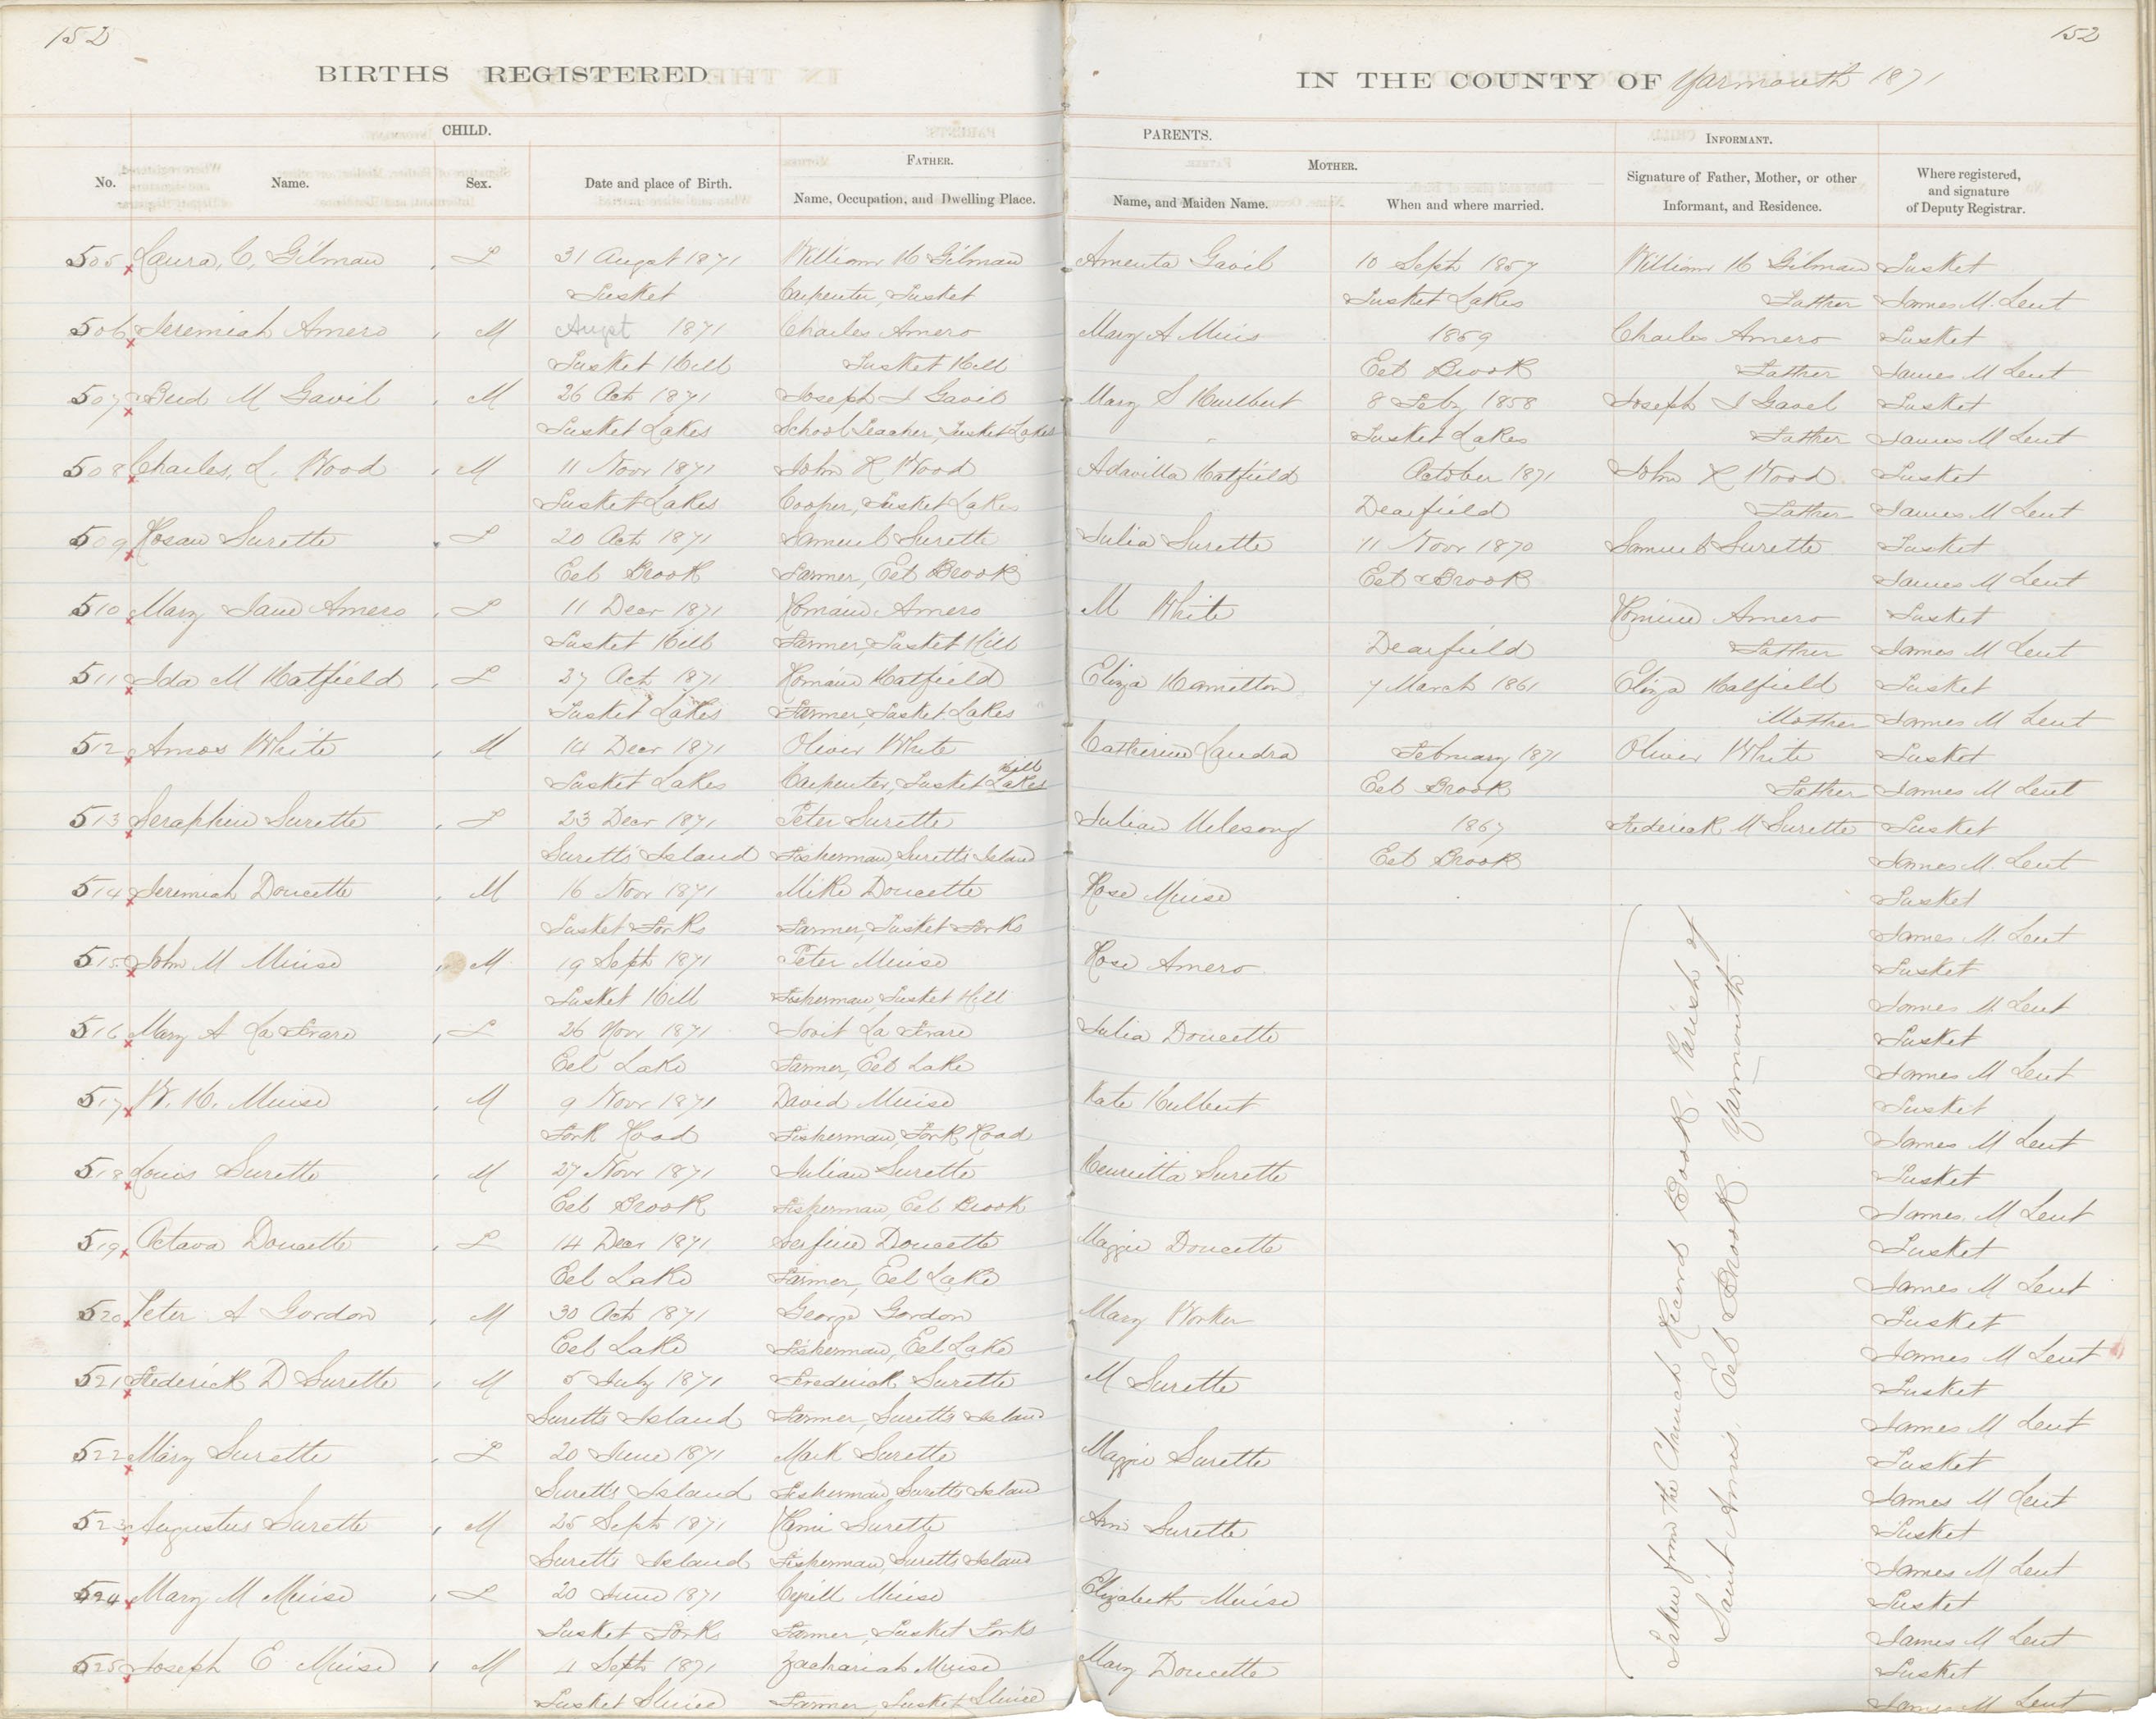 152
152
BIRTHS REGISTERED
IN THE COUNTY OF Yarmouth 1871
CHILD.
PARENTS.
INFORMANT.
FATHER.
MOTHER.
No.
Name.
Sex.
Date and place of Birth.
Name, Occupation, and Dwelling Place.
Name, and Maiden Name.
When and where married.
Signature of Father, Mother, or other
Informant, and Residence.
Where registered,
and signature
of Deputy Registrar.
505 Laura, C, Gilman F 31 August 1871 William H Gilman Amenta Gavil 10 Sept 1857 William H Gilman Tusket
Tusket Carpenter, Tusket Tusket Lakes Father James M. Lent
506 Jeremiah Amero M Augst 1871 Charles Amero Mary A Muis 1859 Charles Amero Tusket
Tusket Hill Tusket Hill Eel Brook Father James M Lent
507 Bud M Gavil M 26 Oct 1871 Joseph I Gavil Mary S Hurlbert 8 Feby 1858 Joseph I Gavel Tusket
Tusket Lakes School Teacher, Tusket Lakes Tusket Lakes Father James M Lent
508 Charles, L. Wood M 11 Novr 1871 John R Wood Adavilla Hatfield October 1871 John R Wood Tusket
Tusket Lakes Cooper, Tusket Lakes Dearfield Father James M Lent
509 Rosan Surette F 20 Oct 1871 Samuel Surette Julia Surette 11 Novr 1870 Samuel Surette Tusket
Eel Brook Farmer, Eel Brook Eel Brook James M Lent
510 Mary Jane Amero F 11 Decr 1871 Romain Amero M White Romain Amero Tusket
Tusket Hill Farmer, Tusket Hill Dearfield Father James M Lent
511 Ida M Hatfield F 27 Oct 1871 Romain Hatfield Eliza Hamilton 7 March 1861 Eliza Hatfield Tusket
Tusket Lakes Farmer, Tusket Lakes Mother James M Lent
512 Amos White M 14 Decr 1871 Oliver White Catherine Landra February 1871 Oliver White Tusket
Hill
Tusket Lakes Carpenter, Tusket Lakes Eel Brook Father James M Lent
513 Seraphin Surette F 23 Decr 1871 Peter Surette Julian 1867 Frederick M Surette Tusket
Suretts Island Fisherman, Suretts Island Eel Brook James M. Lent
514 Jeremiah Doucette M 16 Novr 1871 Mike Doucette Rose Muise Tusket
Tusket Forks Farmer, Tusket Forks James M. Lent
515 John M Muise M 19 Sept 1871 Peter Muise Rose Amero Tusket
Tusket Hill Fisherman, Tusket Hill James M. Lent
516 Mary A La Frare F 26 Novr 1871 Jovit La Frare Julia Doucette Tusket
Eel Lake Farmer, Eel Lake James M Lent
517 W. H. Muise M 9 Novr 1871 David Muise Kate Hulbert Tusket
Fork Road Fisherman, Fork Road James M Lent
518 Louis Surette M 27 Novr 1871 Julian Surette Henrietta Surette Tusket
Eel Brook Fisherman, Eel Brook James M Lent
519 Octava Doucette F 14 Decr 1871 Serfine Doucette Maggie Doucette Tusket
Eel Lake Farmer, Eel Lake James M Lent
520 Peter A Gordon M 30 Oct 1871 George Gordon Mary Worker Tusket
Eel Lake Fisherman, Eel Lake James M Lent
521 Frederick D Surette M 5 July 1871 Frederick Surette M Surette Tusket
Suretts Island Farmer, Suretts Island James M Lent
522 Mary Surette F 20 June 1871 Mark Surette Maggie Surette Tusket
Suretts Island Fisherman, Suretts Island James M Lent
523 Augustus Surette M 25 Sept 1871 Remi Surette Ann Surette Tusket
Suretts Island Fisherman, Suretts Island James M Lent
524 Mary M Muise F 20 June 1871 Cyrill Muise Elizabeth Muise Tusket
Tusket Forks Farmer, Tusket Forks James M Lent
525 Joseph E Muise M 4 Sept 1871 Zachariah Muise Mary Doucette Tusket
Tusket Sluice Farmer, Tusket Sluice James M Lent
Taken from the Church Record Book, Parish of
Saint Anns, Eel Brook Yarmouth